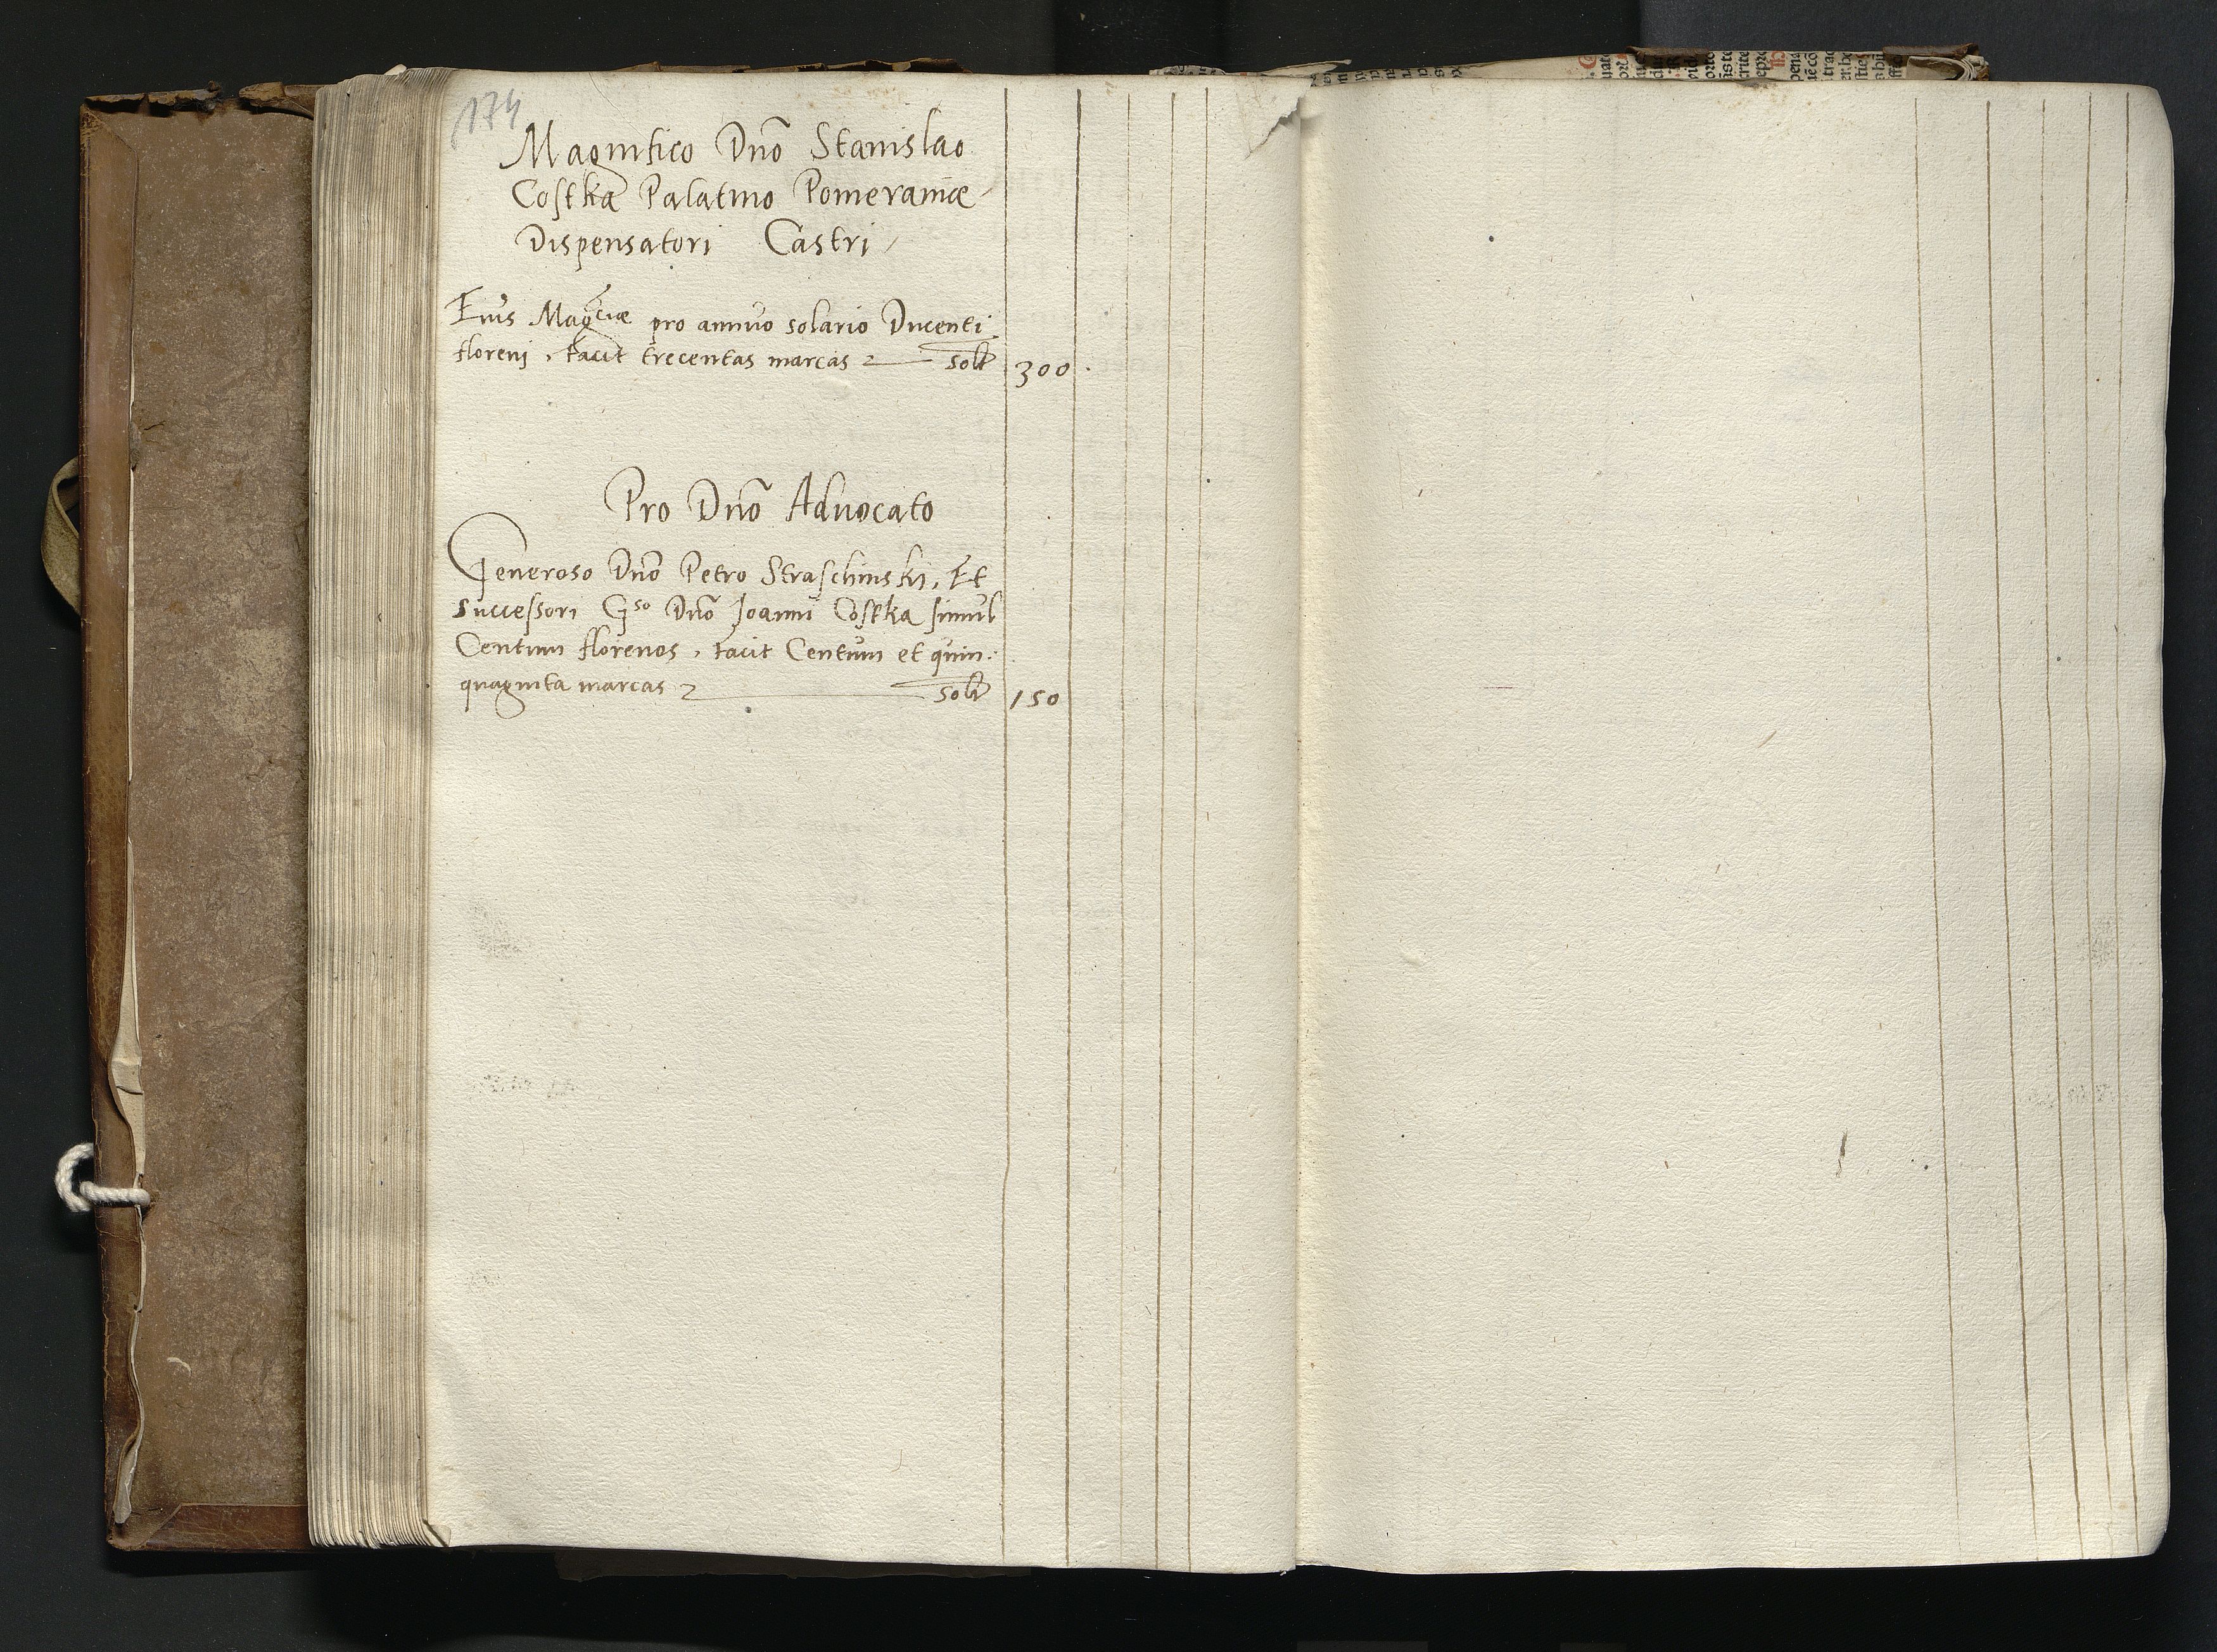 174
Magnifico Dnō Stanislao
Costka Palatino Pomeraniæ
Dispensatori Castri
Eius Magciæ pro annuo solario Ducenti
floreni, facit trecentas marcas solt 300.
Pro Dnō Aduocato
Generoso Dnō Petro Straschinski, Et
successori Gso Dnō Joanni Costka simul
Centum florenos, facit Centum et quin:
quaginta marcas solt 150